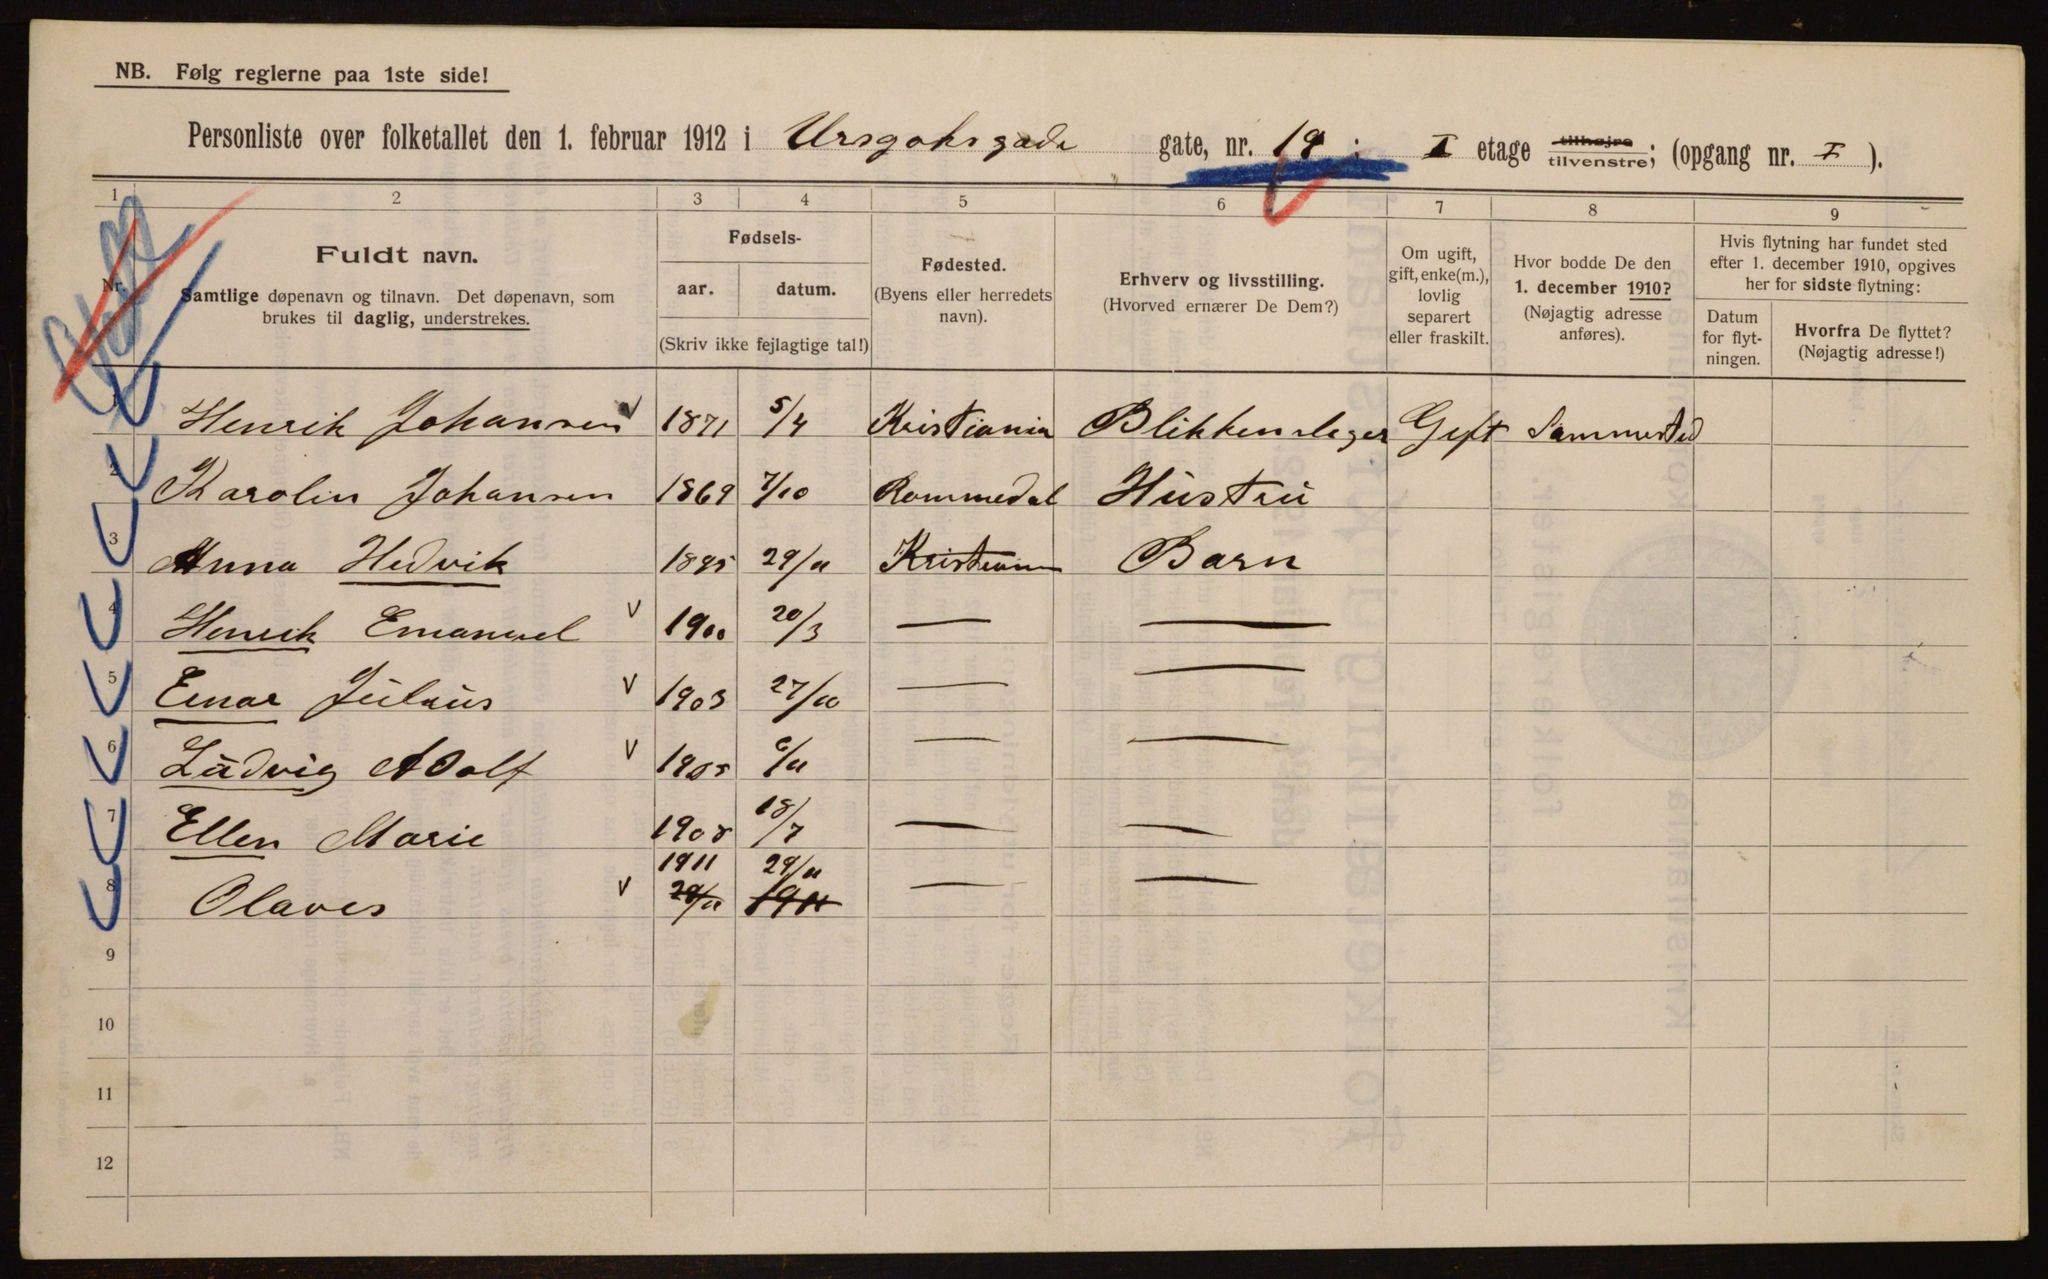 NB. Følg reglerne paa 1ste side!
Personliste over folketallet den 1. februar 1912 i Ursgatsgade gate, nr. 19 : I etage tilhøjre tilvenstre; (opgang nr. I ).
1 2 3 4 5 6 7 8 9
Nr.
Fuldt navn.
Samtlige døpenavn og tilnavn. Det døpenavn, som
brukes til daglig, understrekes.
Fødsels-
aar. datum.
(Skriv ikke fejlagtige tal!)
Fødested.
(Byens eller herredets
navn).
Erhverv og livsstilling.
(Hvorved ernærer De Dem?)
Om ugift,
gift, enke(m.),
lovlig
separert
eller fraskilt.
Hvor bodde De den
1. december 1910?
(Nøjagtig adresse
anføres).
Hvis flytning har fundet sted
efter 1. december 1910, opgives
her for sidste flytning:
Datum
for flyt-
ningen.
Hvorfra De flyttet?
(Nøjagtig adresse!)
1 Henrik Johansen 1871 5/4 Kristiania Blikkenslager Gift Sammested
2 Karolin Johansen 1869 7/10 Rommedal Hustru
3 Anna Hedvik 1895 29/11 Kristiania Barn
4 Henrik Emanuel v 1900 20/3 — —
5 Einar Julius v 1903 27/10 — —
6 Ludvig Adolf v 1905 6/11 — —
7 Ellen Marie 1908 18/7 — —
8 Olaves v 1911 29/11 — —
29/11 1911
9
10
11
12